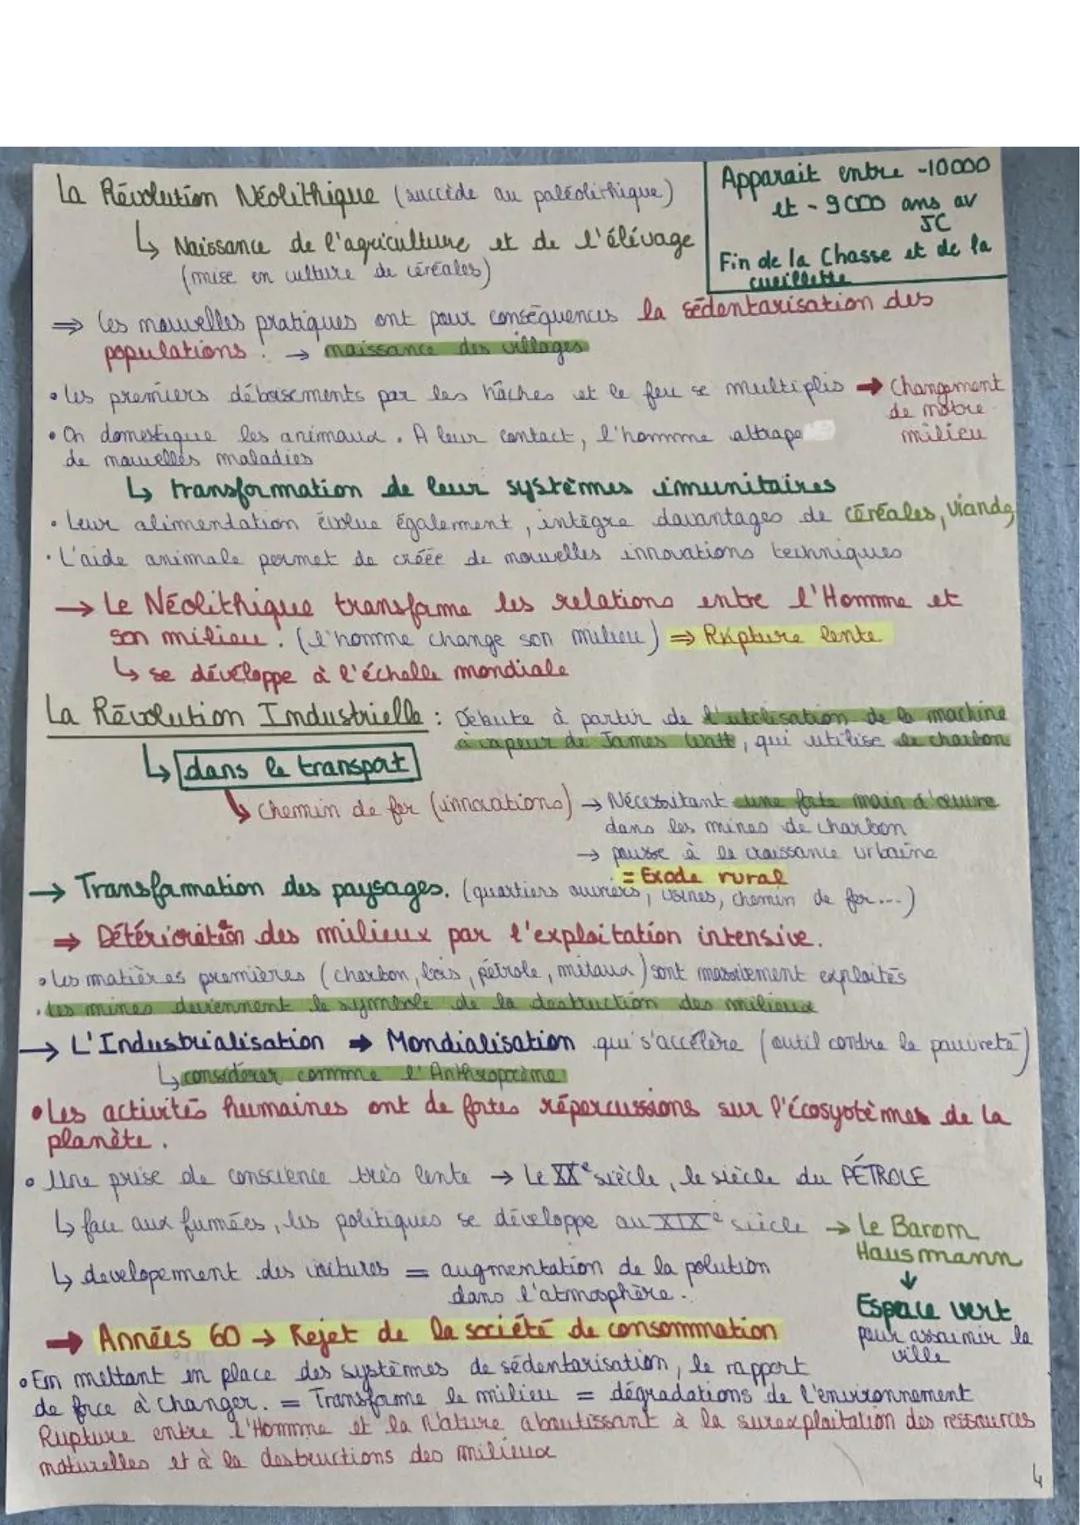 La Révolution Néolithique (succède au paléolithique)
↳ Naissance de l'agriculture et de l'élévage
(mise en culture de céréales)
Apparait entre -10000
et -9000 ans av
JC
Fin de la Chasse et de la
cueillette
⇒ Les nouvelles pratiques ont pour conséquences la sédentarisation des
populations. → naissance des villages
• Les premiers déboisements par les hâches et le feu se multiplis → Changement
de notre
milieu
• On domestique les animaux. A leur contact, l'homme attrape
de nouvelles maladies
↳ transformation de leur systèmes imunitaires
• Leur alimendation évolue également, intègre davantages de céréales, viande
• L'aide animale permet de créée de nouvelles innovations techniques
→ Le Néolithique transforme les relations entre l'Homme et
son milieu : (l'homme change son milieu) ⇒ Rupture lente
↳ se développe à l'échelle mondiale
La Révolution Industrielle : Débute à partir de l'utilisation de la machine
à vapeur de James Watt, qui utilise le charbon
↳ dans le transport
↳ Chemin de fer (innovations) → Nécessitant une forte main d'œuvre
dans les mines de charbon
→ pousse à la croissance urbaine
= Exode rural
→ Transformation des paysages. (quartiers ouvriers, usines, chemin de fer...)
⇒ Détérioration des milieux par l'exploitation intensive.
• Les matières premières (charbon, bois, pétrole, métaux) sont massivement exploités
• Les mines deviennent le symbole de la destruction des milieux
→ L'Industrialisation → Mondialisation qui s'accélère (outil contre la pauvreté)
↳ considérer comme l'Anthropocème
• Les activités humaines ont de fortes répercussions sur l'écosystèmes de la
planète.
• Une prise de conscience très lente → Le XXe siècle, le siècle du PÉTROLE
↳ face aux fumées, les politiques se développe au XIXe siècle → Le Baron
Hausmann
↓
Espace vert
pour assainir la
ville
↳ developement des voitures = augmentation de la polution
dans l'atmosphère.
→ Années 60 → Rejet de la société de consommation
• En mettant en place des systèmes de sédentarisation, le rapport
de force à changer. = Transforme le milieu = dégradations de l'environnement
Rupture entre l'Homme et la Nature aboutissant à la surexploitation des ressources
naturelles et à la destructions des milieux
4